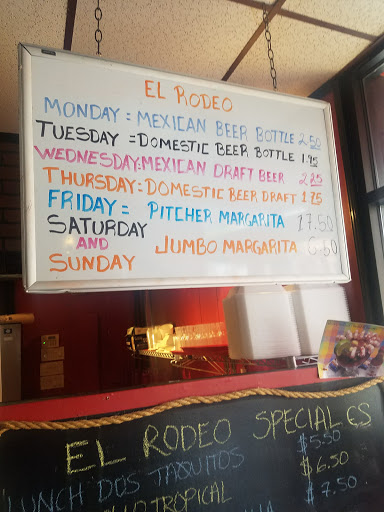 EL RODEO
MONDAY = MEXICAN BEER BOTTLE 2.50
TUESDAY = DOMESTIC BEER BOTTLE 1.95
WEDNESDAY: MEXICAN DRAFT BEER 2.25
THURSDAY: DOMESTIC BEER DRAFT 1.75
FRIDAY = PITCHER MARGARITA 17.50
SATURDAY
AND JUMBO MARGARITA 6.50
SUNDAY
EL RODEO SPECIAL
LUNCH DOS TAQUITOS $5.50
TROPICAL $6.50
$7.50